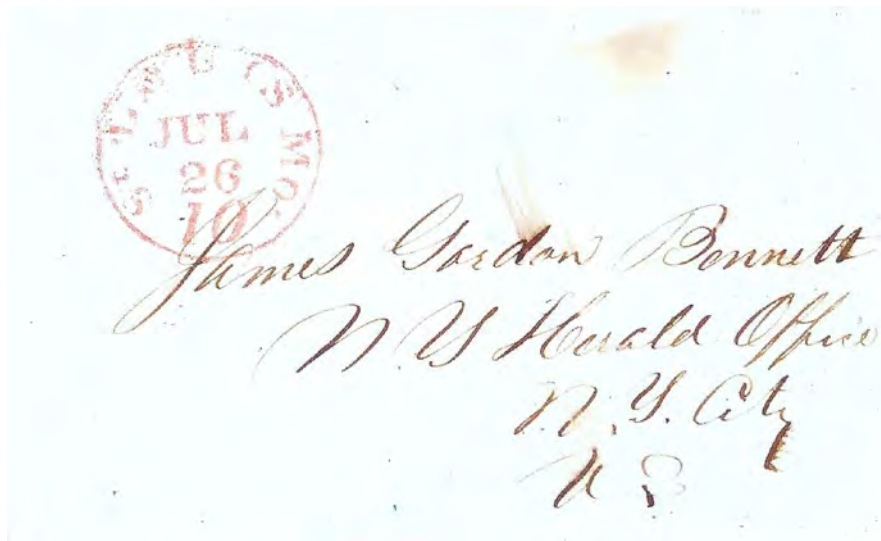 ST. LOUIS MO.
JUL
26
10
James Gordon Bennett
N. Y Herald Office
N. Y. City